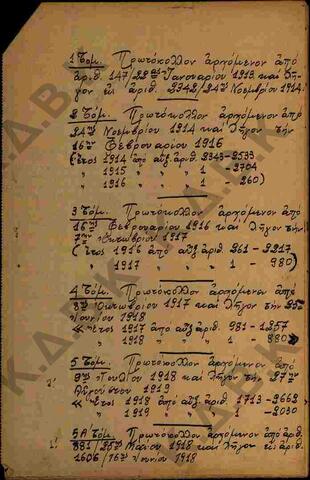 1 Τόμ. Πρωτόκολλον ἀρχόμενον ἀπό
ἀριθ. 147/22ας Ἰανουαρίου 1913 καί λῆ
γον εἰς ἀριθ. 2342/24ης Νοεμβρίου 1914.
2 Τόμ. Πρωτόκολλον ἀρχόμενον ἀπό
24ης Νοεμβρίου 1914 καί λῆγον τήν
16ην Φεβρουαρίου 1916
(ἔτος 1914 ἀπό αὔξ. ἀριθ. 2343-2533
" 1915 " " " 1 - 2704
" 1916 " " " 1 - 260)
3 Τόμ. Πρωτόκολλον ἀρχόμενον ἀπό
16ης Φεβρουαρίου 1916 καί λῆγον τήν
7ην Ὀκτωβρίου 1917
(ἔτος 1916 ἀπό αὔξ. ἀριθ. 261-2217
" 1917 " " " 1 - 980)
4 Τόμ. Πρωτόκολλον ἀρχόμενον ἀπό
Ὀκτωβρίου 1917 καί λῆγον τήν
Ἰουνίου 1918
« ἔτος 1917 ἀπό αὔξ. ἀριθ. 981-1257
" 1918 " " " 1 - 880»
5 Τόμ. Πρωτόκολλον ἀρχόμενον ἀπό
Ἰουλίου 1918 καί λῆγον τήν 27ην
Αὐγούστου 1919
« ἔτος 1918 ἀπό αὔξ. ἀριθ. 1713-2662
" 1919 " " " 1 - 2030
5Α Τόμ. Πρωτόκολλον ἀρχόμενον ἀπό ἀριθ.
Μαρίου 1918 καί λῆγον εἰς ἀριθ.
1606/16ης Ἰουνίου 1918